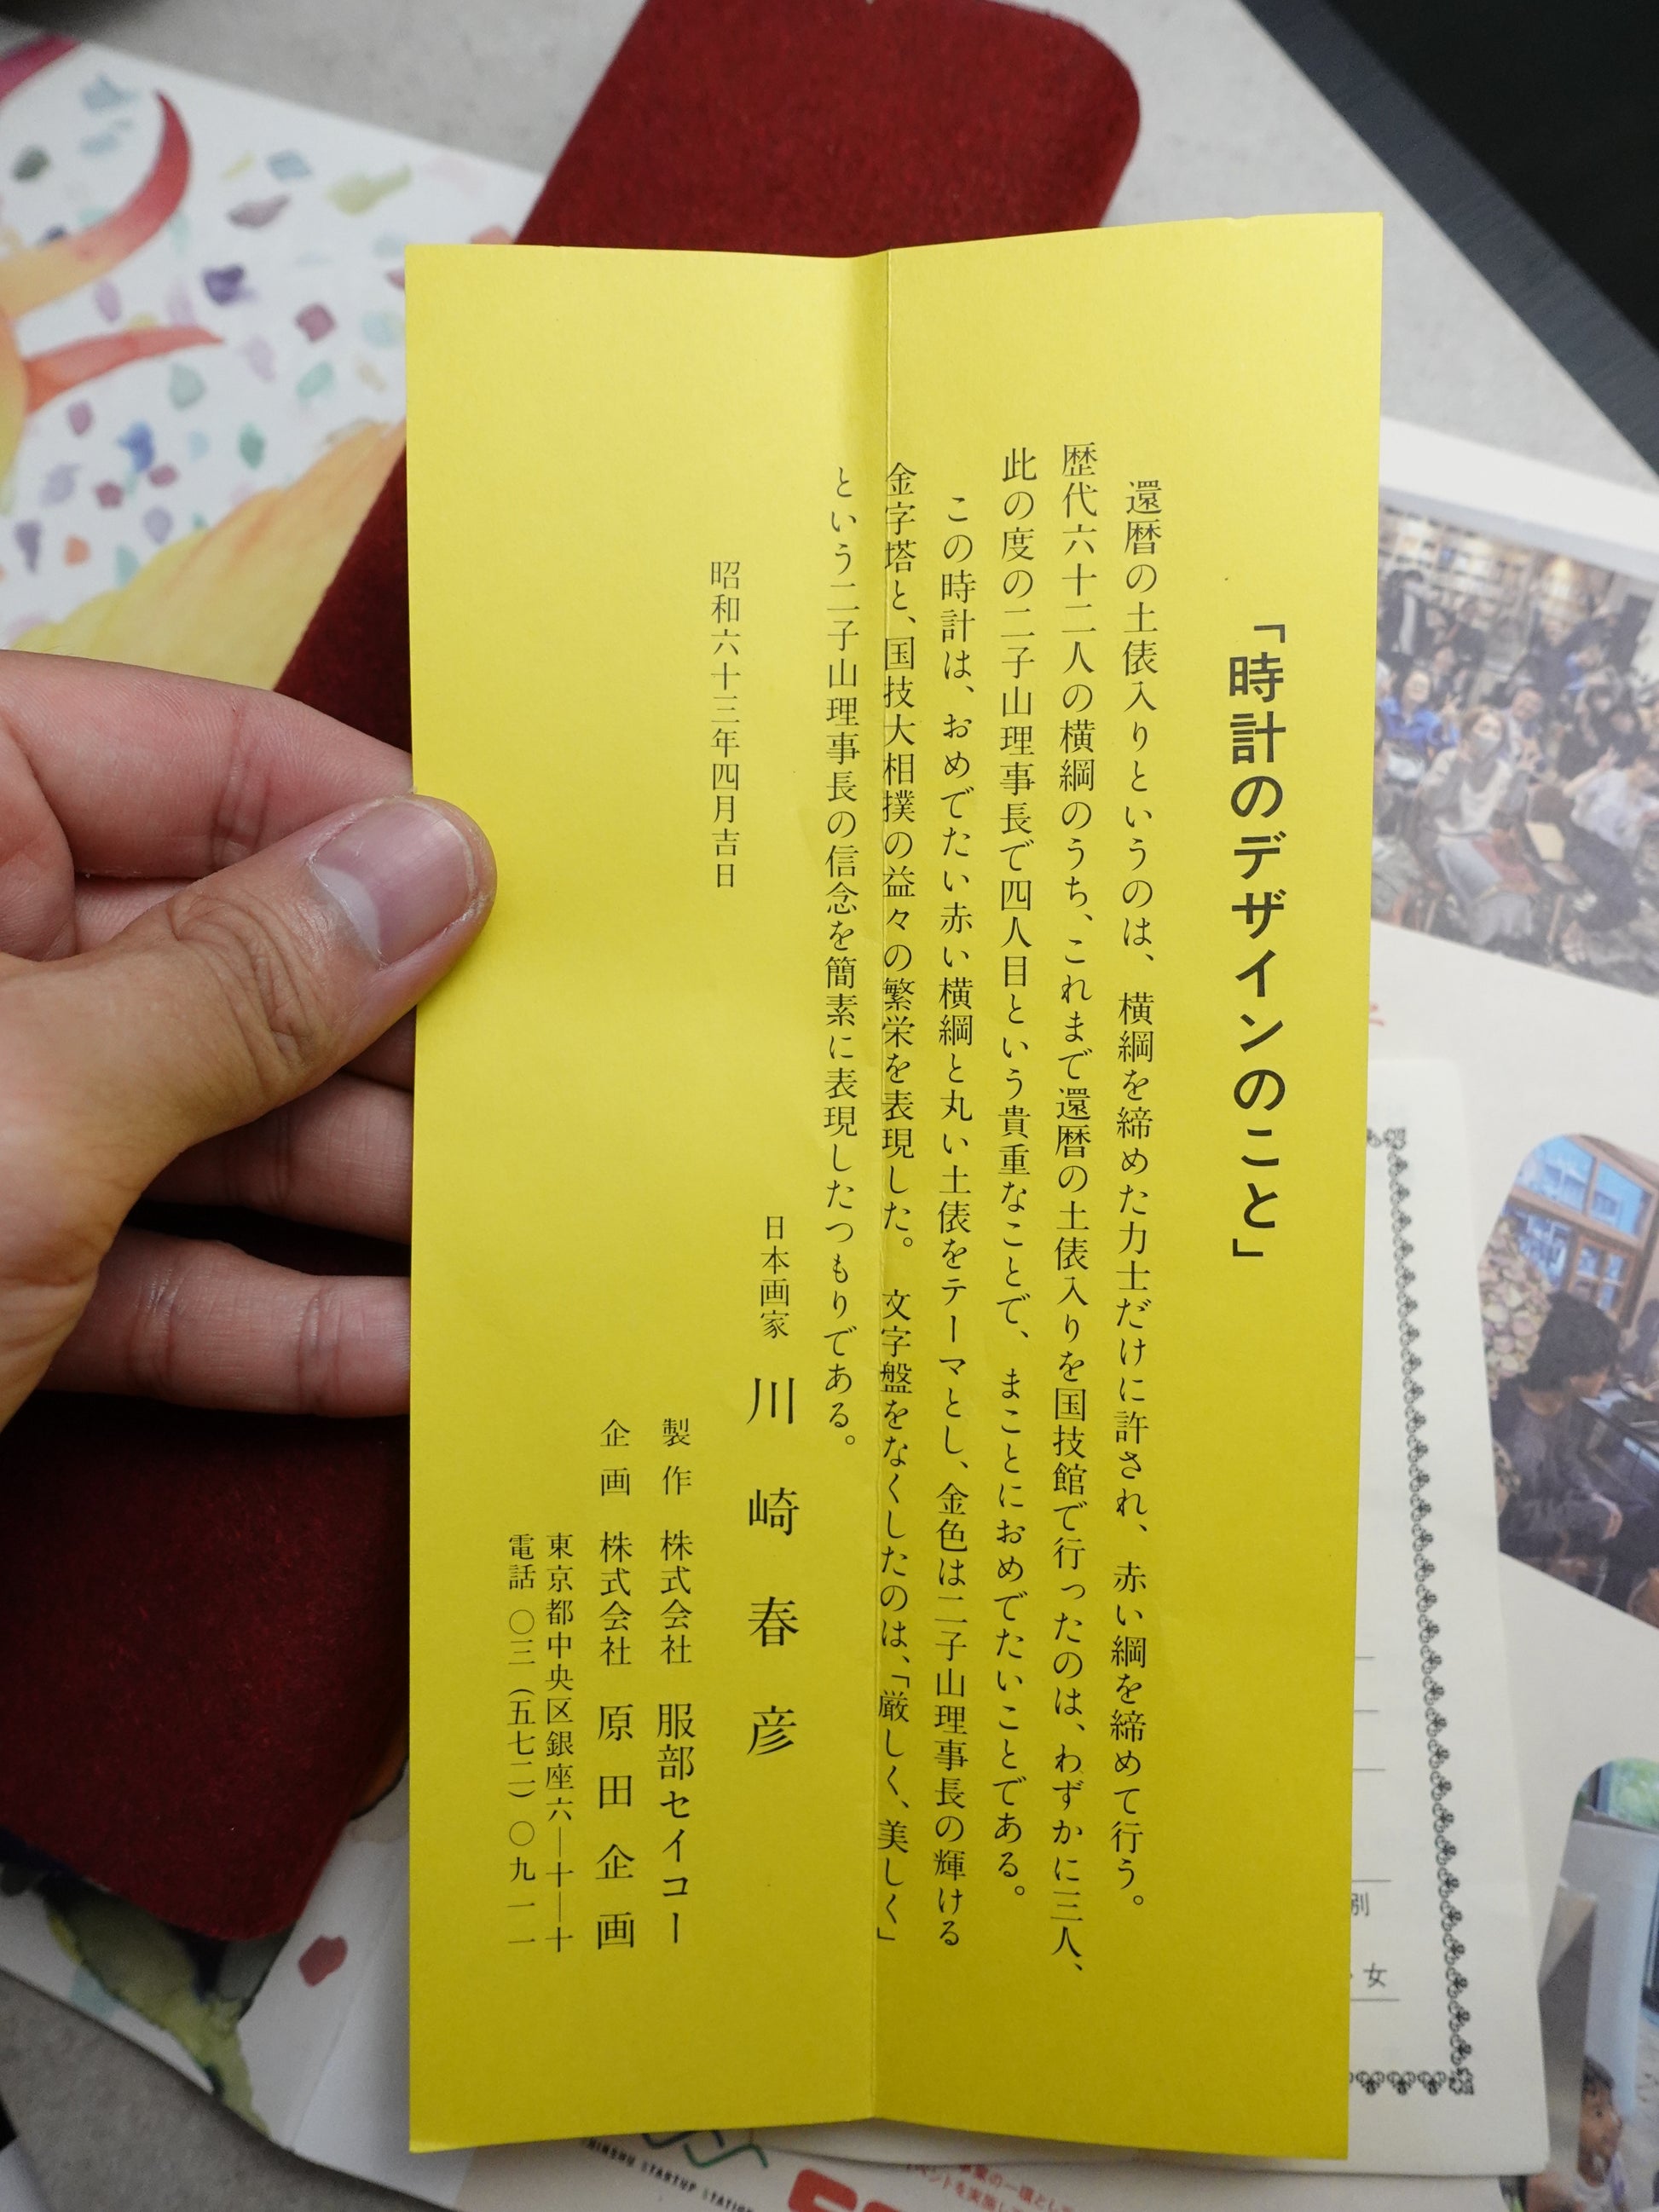 「時計のデザインのこと」
還暦の土俵入りというのは、横綱を締めた力士だけに許され、赤い綱を締めて行う。
歴代六十二人の横綱のうち、これまで還暦の土俵入りを国技館で行ったのは、わずかに三人、
此の度の二子山理事長で四人目という貴重なことで、まことにおめでたいことである。
この時計は、おめでたい赤い横綱と丸い土俵をテーマとし、金色は二子山理事長の輝ける
金字塔と、国技大相撲の益々の繁栄を表現した。文字盤をなくしたのは、「厳しく、美しく」
という二子山理事長の信念を簡素に表現したつもりである。
日本画家 川崎春彦
昭和六十三年四月吉日
製作 株式会社 服部セイコー
企画 株式会社 原田企画
東京都中央区銀座六―十―十
電話 〇三(五七二)〇九一一
別
・女
STARTUP STATION